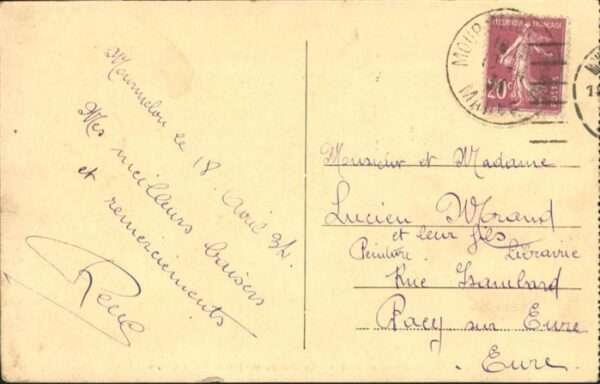 Mourmelon le 18 Avril 34.
Mes meilleurs baisers
et remerciements
René
REPUBLIQUE FRANÇAISE
20c
POSTES
Monsieur et Madame
Lucien Morand
et leur fils
Peinture. Librairie
Rue Isambard
Pacy sur Eure
Eure.